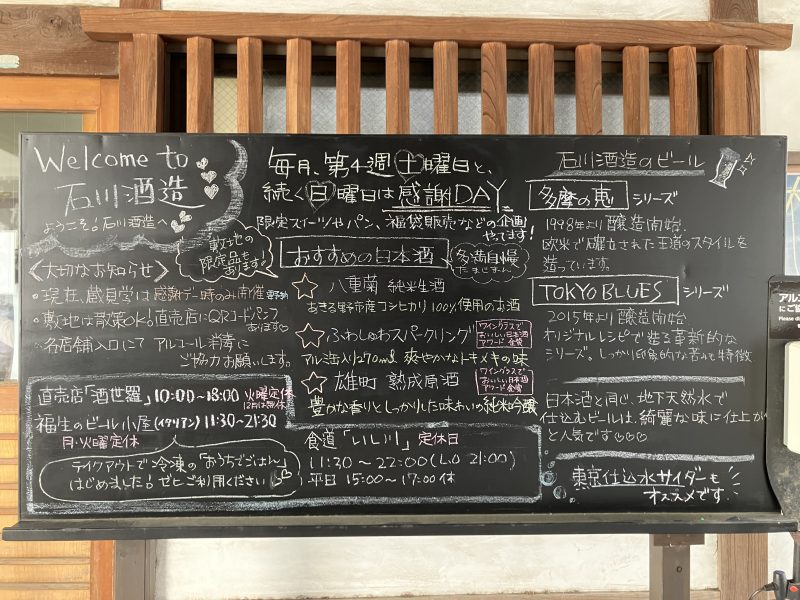 Welcome to
石川酒造
ようこそ！石川酒造へ
〈大切なお知らせ〉
・現在、蔵見学は感謝デー時のみ開催 要予約
・敷地は散策OK！直売店にQRコードパンフ
あります♡
・各店舗入口にて アルコール消毒に
ご協力お願いします。
直売店「酒世羅」10:00~18:00 火曜定休
12月は無休
福生のビール小屋(イタリアン) 11:30-21:30
月・火曜定休
テイクアウトで冷凍の「おうちでごはん」
はじめました！ぜひご利用ください
毎月、第4週土曜日と、
続く日曜日は感謝DAY
限定スイーツやパン、福袋販売などの企画
やってます！
敷地の
限定品も
あります！
おすすめの日本酒
多満自慢
たまじまん
☆ 八重菊 純米生酒
あきる野市産コシヒカリ100%使用のお酒
☆ ふわしゅわスパークリング
ワイングラスで
おいしい日本酒
アワード 金賞
アルミ缶入り270ml 爽やかなトキメキの味
☆ 雄町 熟成原酒
ワイングラスで
おいしい日本酒
アワード 金賞
豊かな香りとしっかりした味わいの純米吟醸
食道「いし川」定休日
11:30~22:00(L.O 21:00)
平日 15:00~17:00 休
石川酒造のビール
多摩の恵 シリーズ
1998年より醸造開始.
欧米で確立された王道のスタイルを
造っています。
TOKYO BLUES シリーズ
2015年より醸造開始
オリジナルレシピで造る革新的な
シリーズ。しっかり印象的な苦みで特徴
日本酒と同じ、地下天然水で
仕込むビールは、綺麗な味に仕上が
と人気です♡♡♡
東京仕込水サイダーも
オススメです
アル
にご
Please d